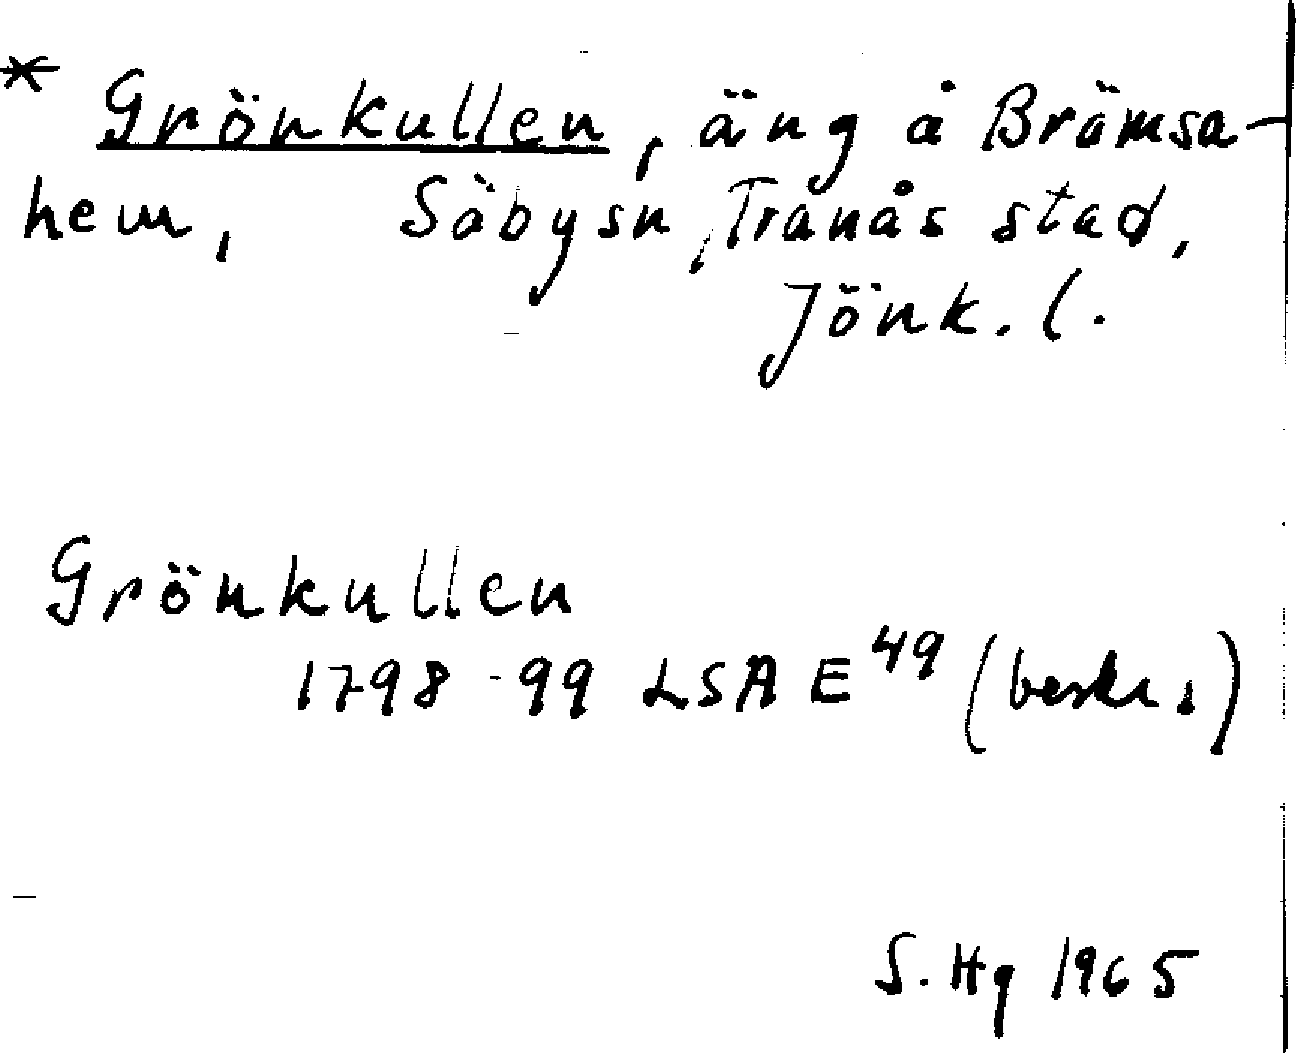 * Grönkullen, äng å Brämsa-
hem, Säby sn, Tranås stad,
Jönk. l.
Grönkullen
1798-99 LSA E 49 (beskr.)
S. Hg 1965